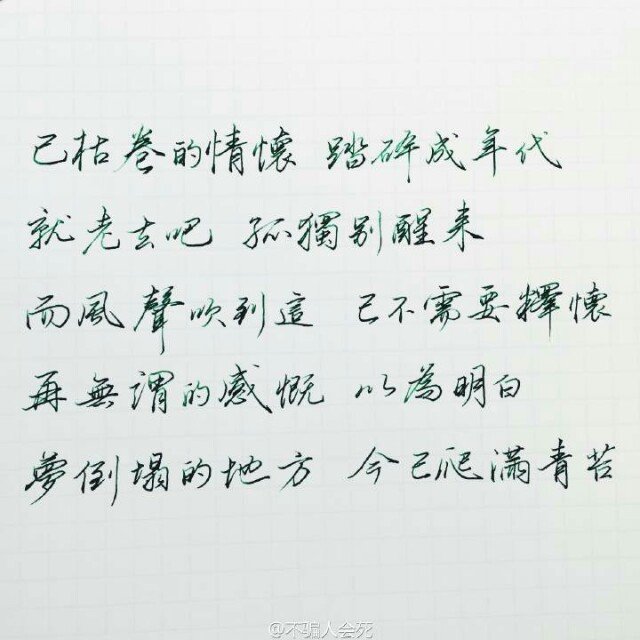 已枯卷的情懷 踏碎成年代
就老去吧 孤獨別醒来
而風聲吹到這 已不需要釋懷
再無謂的感慨 以為明白
夢倒塌的地方 今已爬滿青苔
@不骗人会死